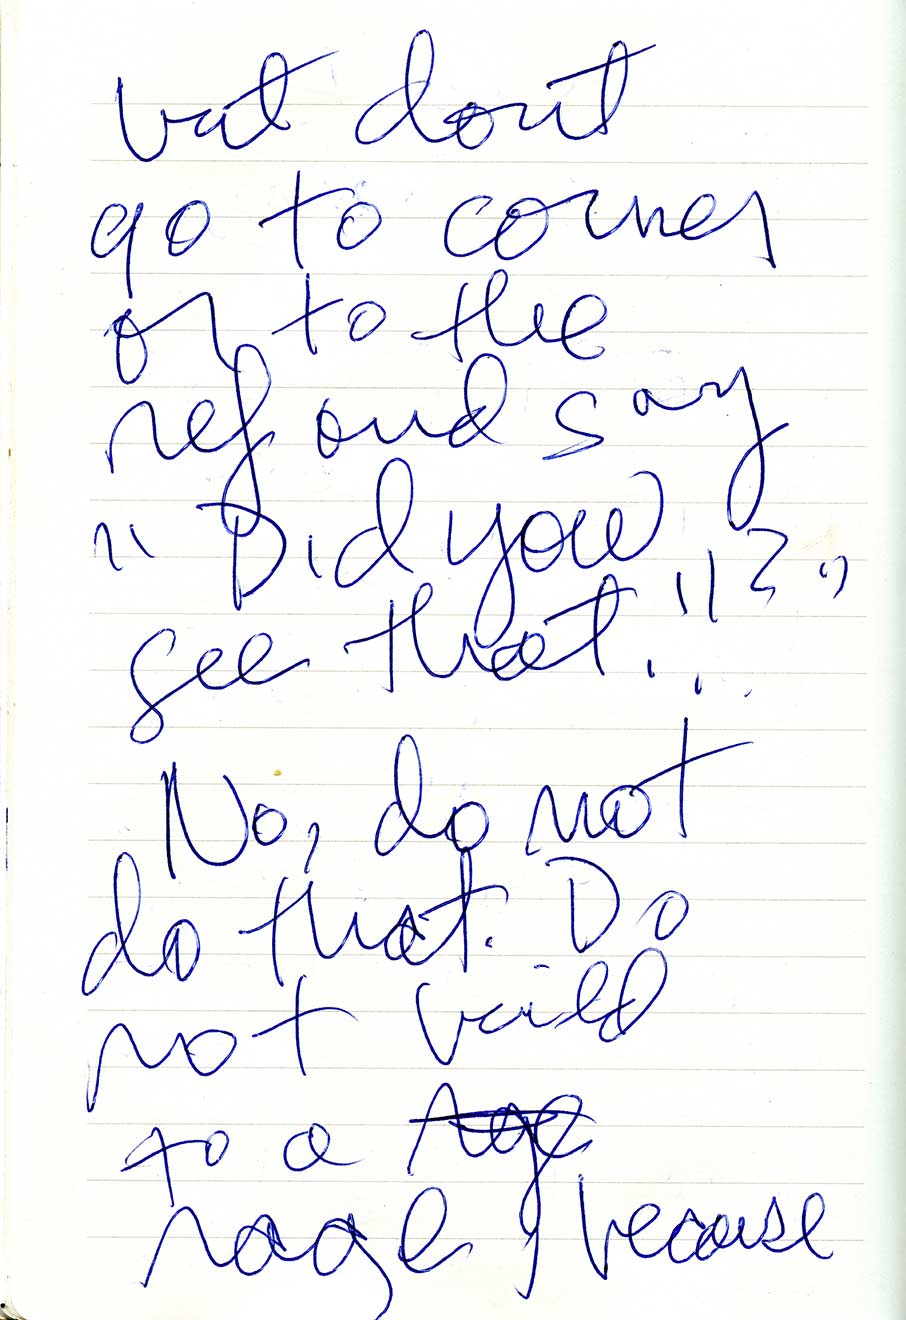 but don't
go to corner
or to the
ref and say
"Did you
see that!!?"
No, do not
do that. Do
not build
to a rage
rage, because